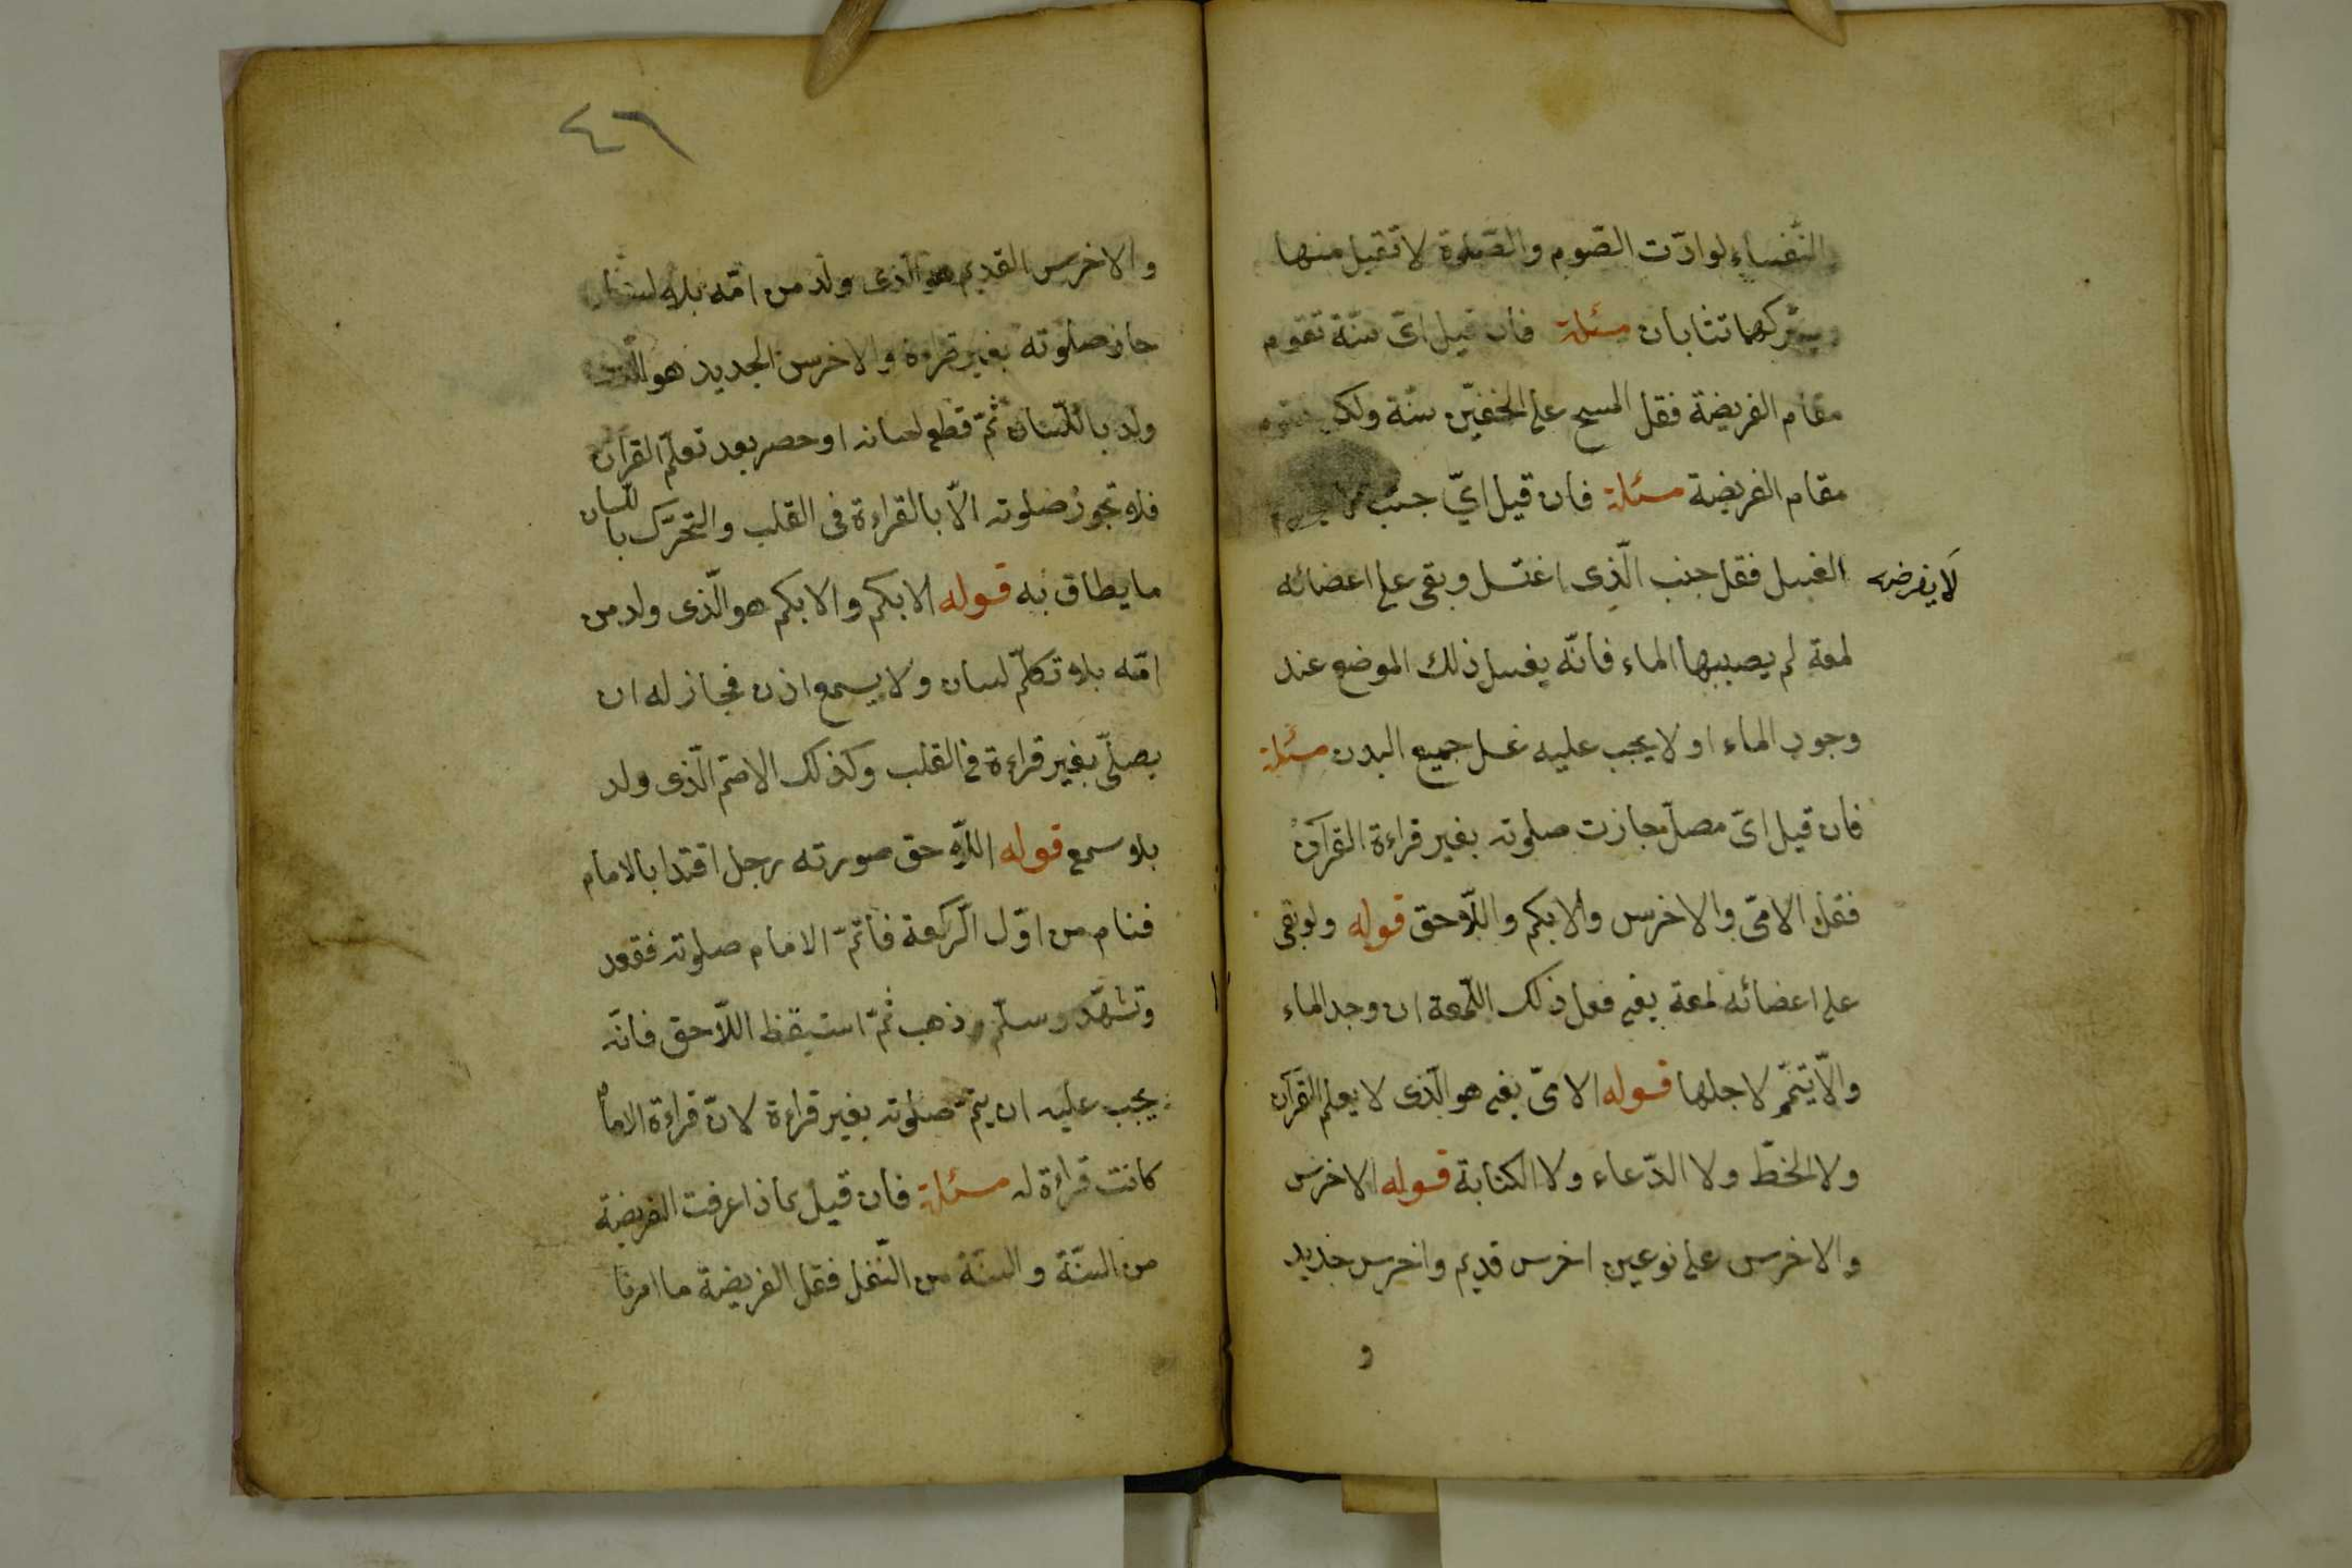 النّفساء لو ادّت الصّوم والصّلوة لا تقبل منها
وبتركهما تثابان مسئلة فان قيل اىّ سنّة تقوم
مقام الفريضة فقل المسح على الخفيّن سنة ولكن
مقام الفريضة مسئلة فان قيل ايّ جنب
لا يفرضه
الغسل فقل جنب الّذى اغتسل وبقى على اعضائه
لمعة لم يصيبها الماء فانّه يغسل ذلك الموضع عند
وجود الماء او لا يجب عليه غسل جميع البدن مسئلة
فان قيل اىّ مصلّ جازت صلوته بغير قراءة القرآن
فقل الامّى والاخرس والابكم واللّاحق قوله ولو بقى
على اعضائه لمعة يغى فعل ذلك اللّمعة ان وجد الماء
والّا يتمّم لاجلها قوله الامىّ يغى هو الّذى لا يعلم القرآن
ولا الخطّ ولا الدّعاء ولا الكتابة قوله الاخرس
والاخرس على نوعين اخرس قديم واخرس جديد
و
٤٦
والاخرس القديم هو الّذى ولد من امّه بلا لسان
جاز صلوته بغير قراءة والاخرس الجديد هو الّذى
ولد باللّسان ثمّ قطع لسانه او حصر بعد تعلّم القرآن
فلا تجوز صلوته الّا بالقراءة فى القلب والتحرّك باللّسان
ما يطاق به قوله الابكم والابكم هو الّذى ولد من
امّه بلا تكلّم لسان ولا يسمع اذن فجاز له ان
يصلّى بغير قراءة فى القلب وكذلك الاصمّ الّذى ولد
بلا سمع قوله اللّاحق صورته رجل اقتدا بالامام
فنام من اوّل الرّكعة فاتمّ الامام صلوته فقعد
وتشهّد وسلّم وذهب ثمّ استيقظ اللّاحق فانّه
يجب عليه ان يتمّ صلوته بغير قراءة لانّ قراءة الامام
كانت قراءة له مسئلة فان قيل بماذا عرفت الفريضة
من السنّة والسنّة من النّفل فقل الفريضة ما امرنا